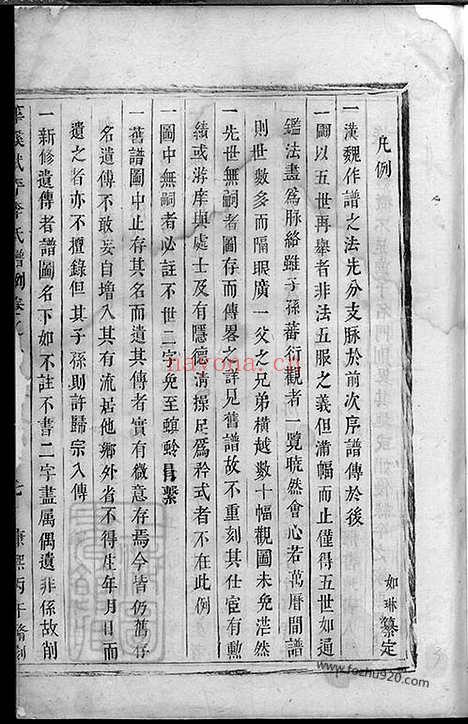 凡例
如琳纂定
一漢魏作譜之法先分支脉於前次序譜傳於後
一圖以五世再舉者非法五服之義但滿幅而止僅得五世如通
鑑法畫為脉絡雖子孫蕃衍觀者一覽曉然會心若萬曆間譜
則世數多而隔眼廣一父之兄弟橫越數十幅觀圖未免茫然
一先世無嗣者圖存而傳畧之詳見舊譜故不重刻其仕宦有勲
績或游庠與處士及有隱德清操足為矜式者不在此例
一圖中無嗣者必註不世二字免至螟蛉冒繫
一舊譜圖中止存其名而遺其傳者實有微意存焉今皆仍舊存
名遺傳不敢妄自增入其有流居他鄉外省不得生年月日而
遺之者亦不擅錄但其子孫則許歸宗入傳
一新修遺傳者譜圖名下如不註不書二字盡属偶遺非係故削
李氏譜 例 七 康熙丙午
nayona.cn
www.fozhu920.com